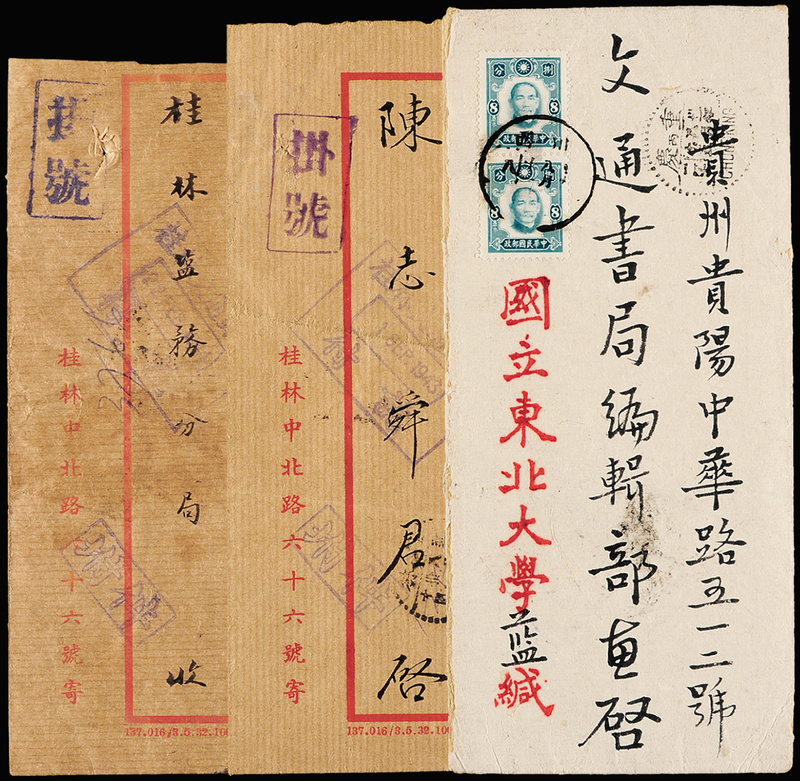 貴州貴陽中華路五一二號
文通書局編輯部 啓
國立東北大學藍緘
分 捌
8 8
中華民國郵政
分 捌
8 8
中華民國郵政
掛號
陳志舜君啓
1 SEP 1943
桂林中北路六十六號寄
137.016/3.5.32.100
掛號
桂林盐務分局 收
桂林中北路 十六號寄
137.016/3.5.32.100